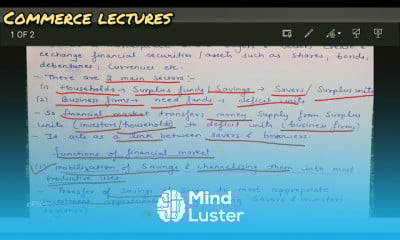 COMMERCE LECTURES
1 OF 2
exchange financial securities / assets such as shares, bonds,
debentures, currencies etc.
- There are 2 main sectors:-
(1) Households → Surplus funds / Savings → Savers / Surplus units
(2) Business firms → need funds → deficit units
- So financial market transfers money supply from Surplus
units (investors/households) to deficit units (business firms)
- It acts as a link between savers & borrowers.
Functions of financial market
(1) Mobilization of Savings & Channelising them into most
Productive uses:-
- Transfer of savings most appropriate
investment savers & investors
Mind
Luster